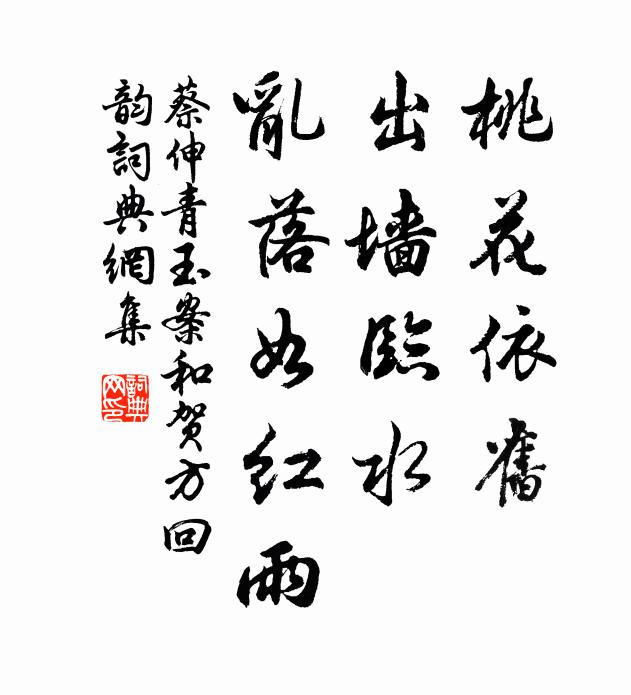 桃花依舊
出墙臨水
亂落如紅雨
蔡伸青玉案和贺方回
韵詞典網集
詞典网印